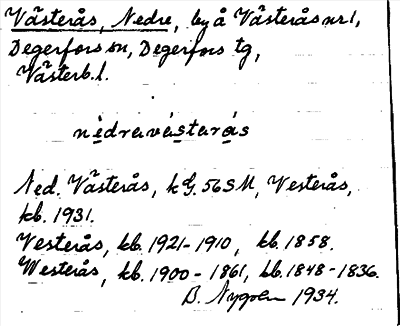 Västerås, Nedre, by å Västerås nr 1,
Degerfors sn, Degerfors tg,
Västerb. l.
nẹdravạ́starạ́s
Ned. Västerås, kG. 56 SM, Vesterås,
kb. 1931.
Vesterås, kb. 1921-1910, kb. 1858.
Westerås, kb. 1900-1861, kb. 1848-1836.
B. Nygren 1934.